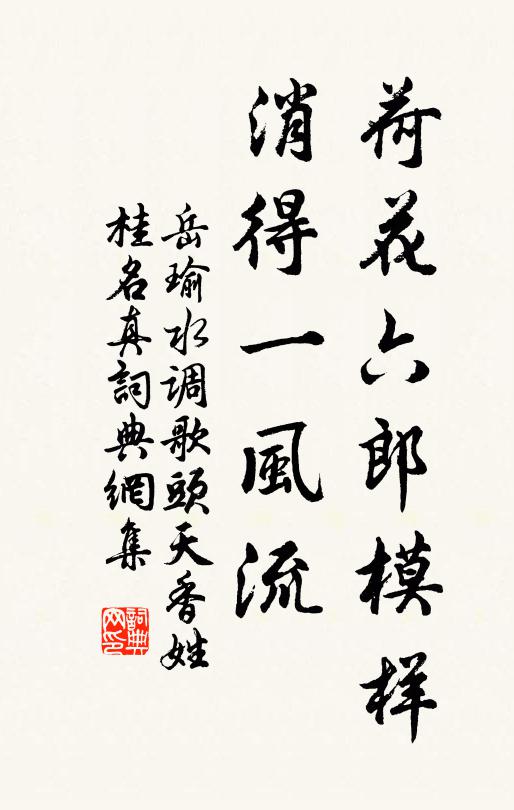 荷花六郎模样
消得一風流
岳瑜水调歌頭天香姓
桂名真詞典網集
詞典網印